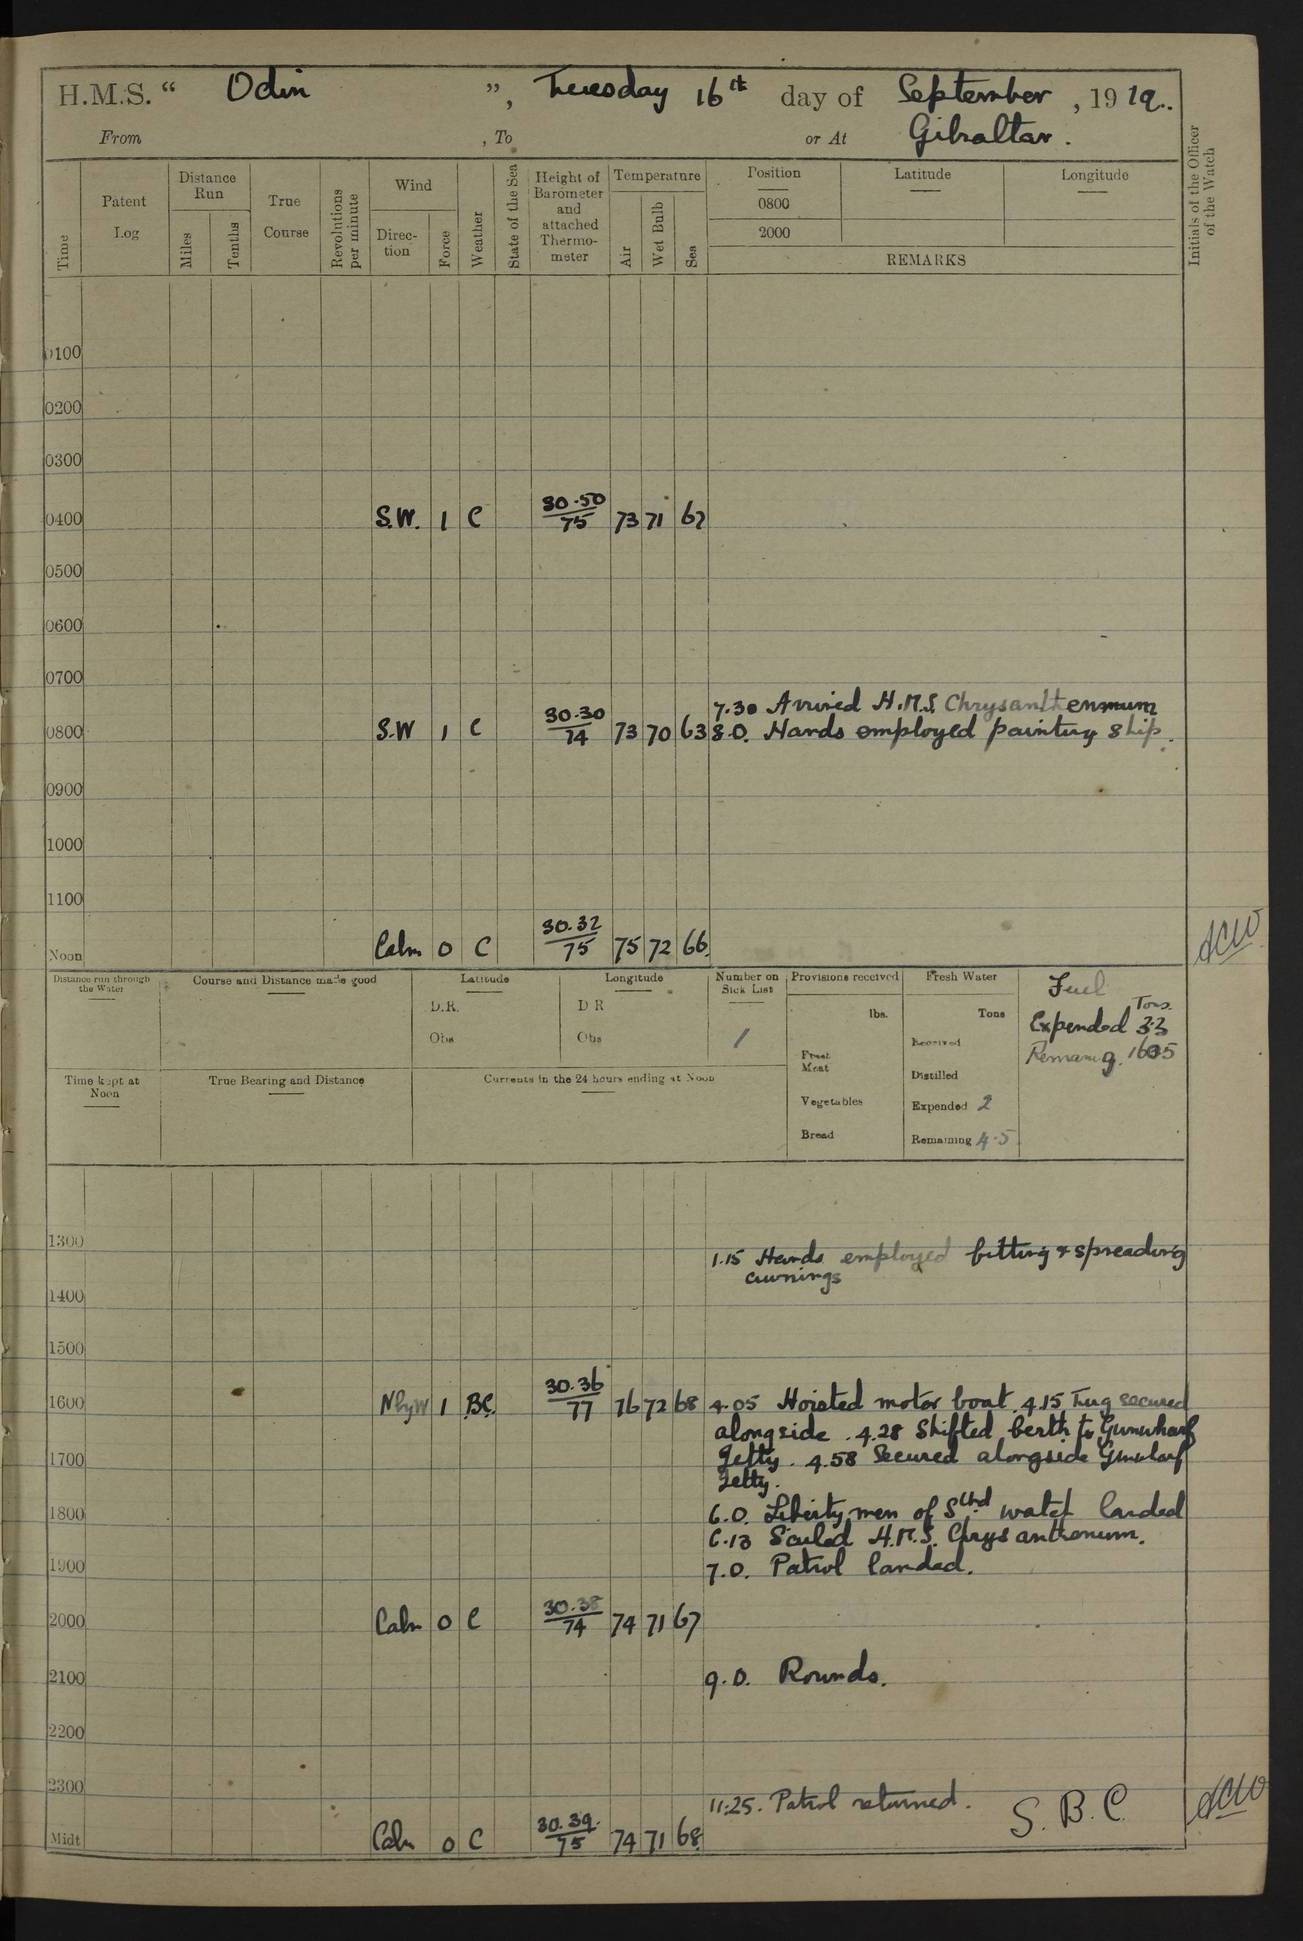 H.M.S. “ Odin ”, Tuesday 16th day of September, 1919.
From , To or At Gibraltar.
Time
Patent Log
Distance Run
Miles
Tenths
True Course
Revolutions per minute
Wind
Direc- tion
Force
Weather
State of the Sea
Height of Barometer and attached Thermo- meter
Temperature
Air
Wet Bulb
Sea
Position
0800
2000
Latitude
Longitude
REMARKS
Initials of the Officer of the Watch
0100
0200
0300
0400 S.W. 1 C 30.50/75 73 71 62
0500
0600
0700
7.30 Arrived H.M.S Chrysanthenmum
0800 S.W 1 C 30.30/74 73 70 63 8.0. Hands employed painting ship.
0900
1000
1100
Noon Calm 0 C 30.32/75 75 72 66. ACW
Distance run through the Water
Course and Distance made good
Latitude
D.R.
Obs
Longitude
D R
Obs
Number on Sick List
1
Provisions received
lbs.
Fresh Meat
Vegetables
Bread
Fresh Water
Tons
Received
Distilled
Expended 2
Remaining 4.5
Fuel
Tons.
Expended 3.3
Remaing. 1605
Time kept at Noon
True Bearing and Distance
Currents in the 24 hours ending at Noon
1300
1.15 Hands employed fitting & spreading
awnings
1400
1500
1600 NbyW 1 BC. 30.36/77 76 72 68 4.05 Hoisted motor boat. 4.15 Tug secured
alongside. 4.28 Shifted berth to Gunwharf
1700 Jetty. 4.58 Secured alongside Gunwharf
Jetty.
1800 6.0. Liberty men of Stbd watch landed
6.13 Sailed H.M.S. Chrysanthemum.
1900 7.0. Patrol landed.
2000 Calm 0 C 30.38/74 74 71 67
2100 9.0. Rounds.
2200
2300 11.25. Patrol returned. S.B.C ACW
Midt Calm 0 C 30.39/75 74 71 68.